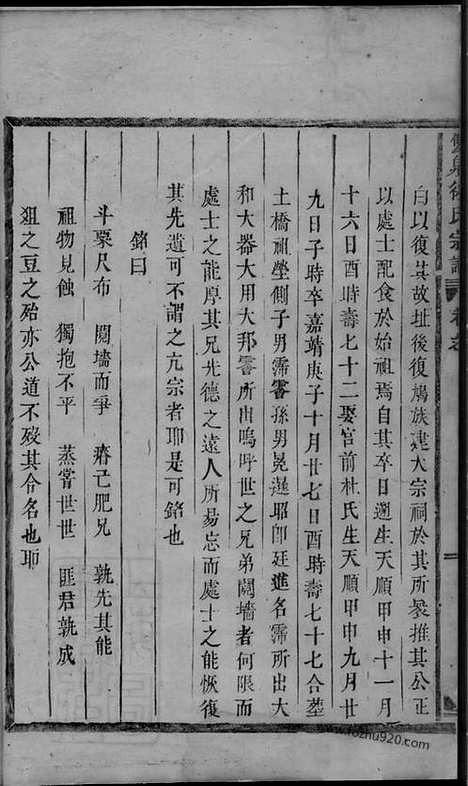 白以復其故址後復鳩族建大宗祠於其所衆推其公正
以處士配食於始祖焉自其卒日遡生天順甲申十一月
十六日酉時壽七十二娶官前杜氏生天順甲申九月廿
九日子時卒嘉靖庚子十月廿七日酉時壽七十七合塟
土橋祖塋側子男霈霫孫男晃暹昭郎廷進名霈所出大
和大器大用大邦霫所出嗚呼世之兄弟鬩墻者何限而
處士之能厚其兄先德之遠人所易忘而處士之能恢復
其先遺可不謂之亢宗者耶是可銘也
銘曰
斗粟尺布 鬩墻而爭 瘠己肥兄 孰先其能
祖物見蝕 獨抱不平 蒸嘗世世 匪君孰成
俎之豆之殆亦公道不歿其令名也耶
徐氏宗譜
www.fozhu920.com